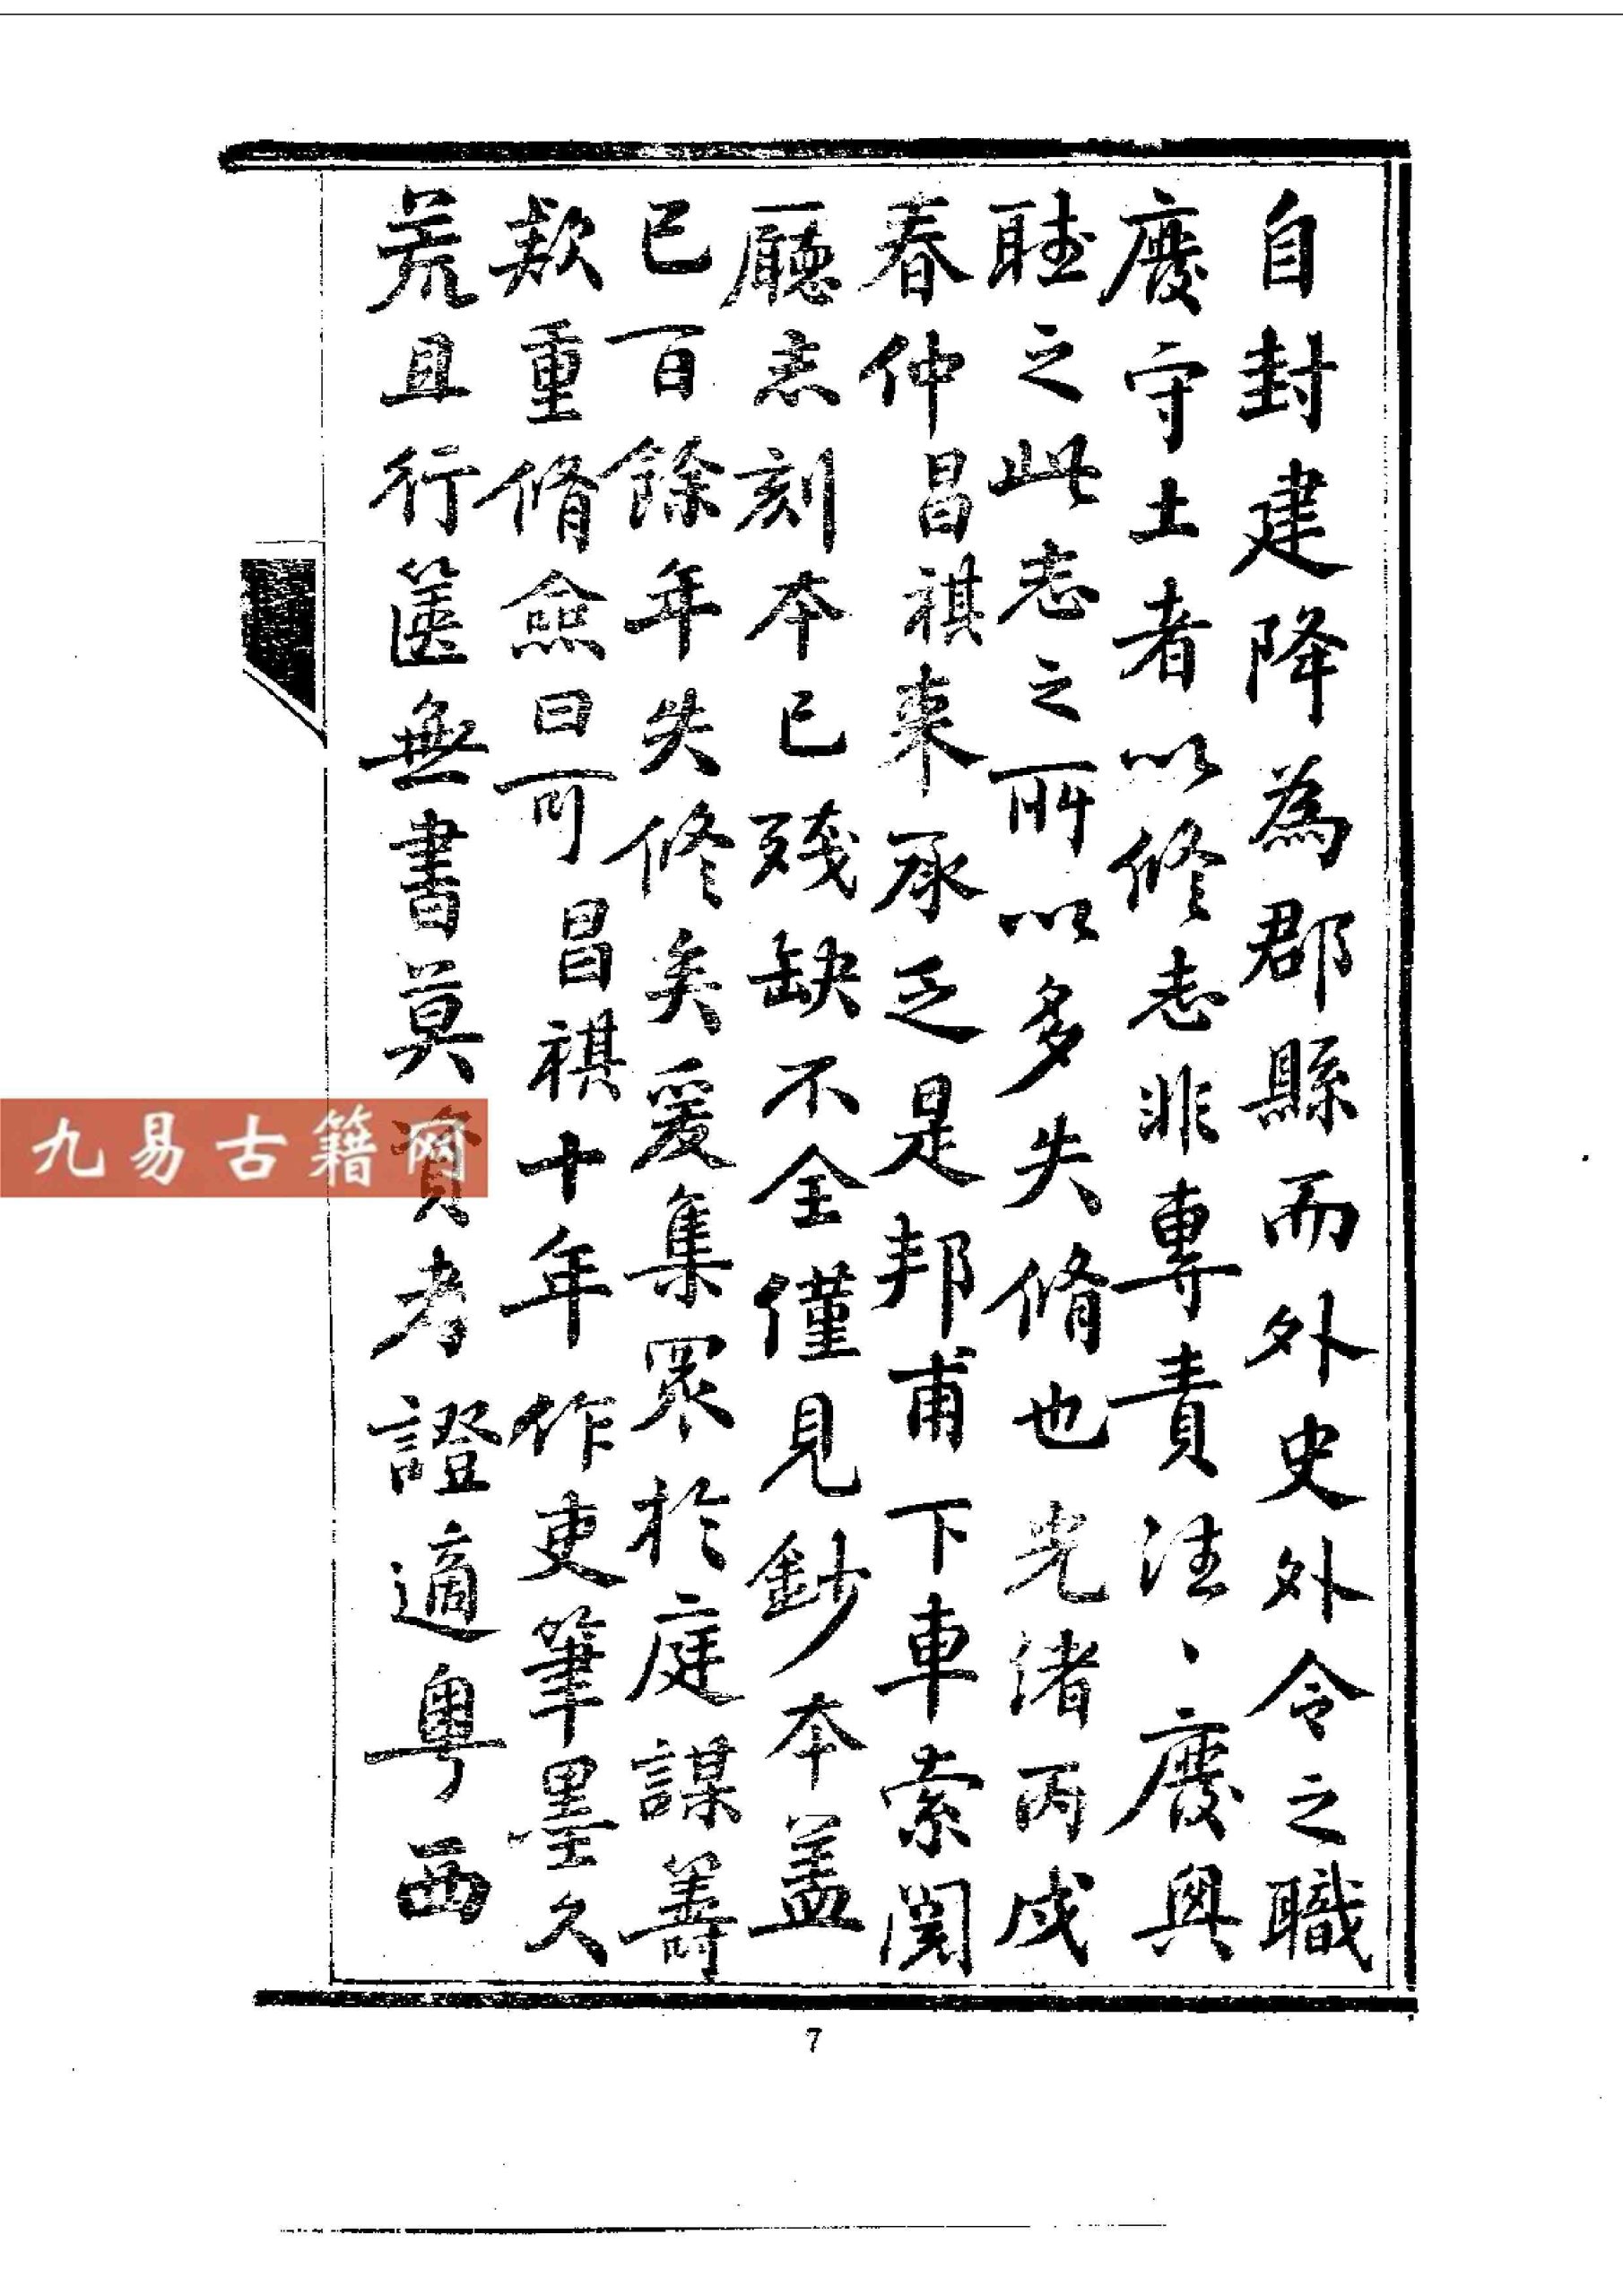 自封建降為郡縣而外史外令之職
廢守土者以修志非專責往、廢與
聽之此志之所以多失脩也光緒丙戌
春仲昌祺來承乏是邦甫下車索閱
廳志刻本已殘缺不全僅見鈔本蓋
已百餘年失修矣爰集眾於庭謀籌
欵重脩僉曰可昌祺十年作吏筆墨久
荒且行篋無書莫資考證適粤西
九易古籍网
7